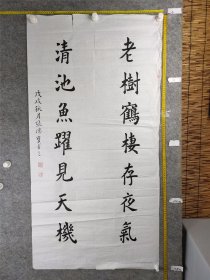 老樹鶴棲存夜氣
清池魚躍見天機
戊戌秋月